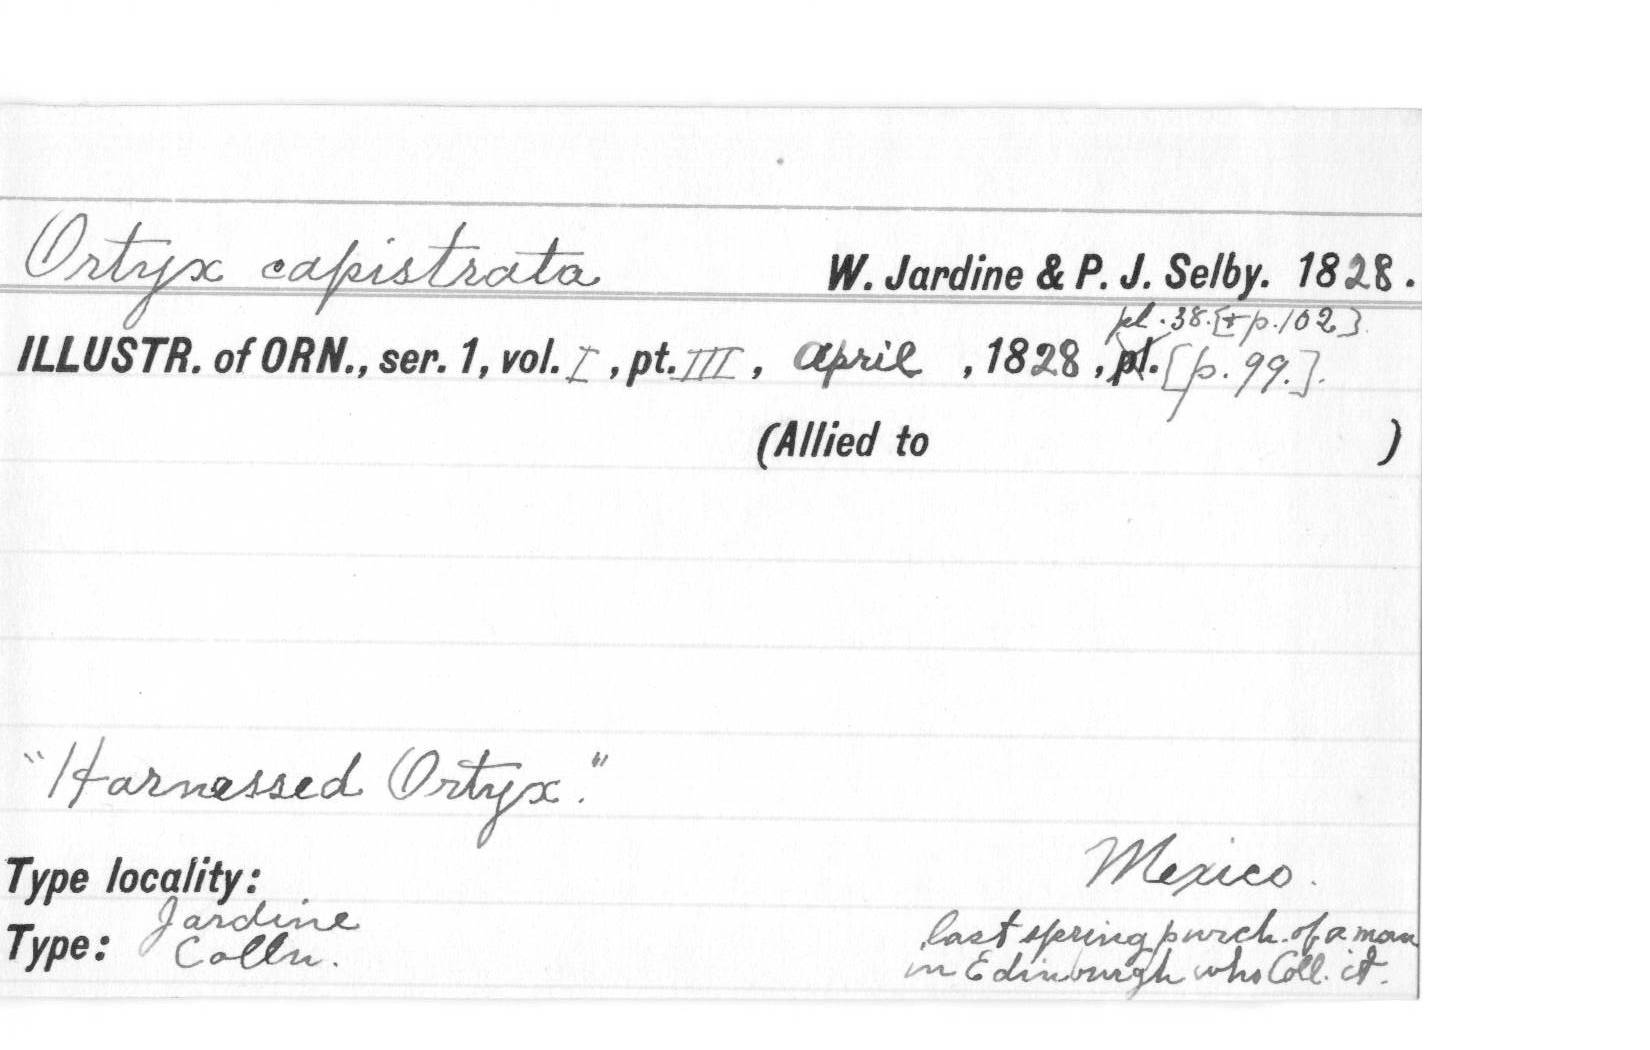 Ortyx capistrata W. Jardine & P. J. Selby. 1828.
pl. 38. [+ p. 102].
ILLUSTR. of ORN., ser. 1, vol. I, pt. III, april, 1828, pl. [p. 99.].
(Allied to )
"Harnessed Ortyx."
Type locality: Mexico.
Type: Jardine Colln.
last spring purch. of a man
in Edinburgh who Coll. it.